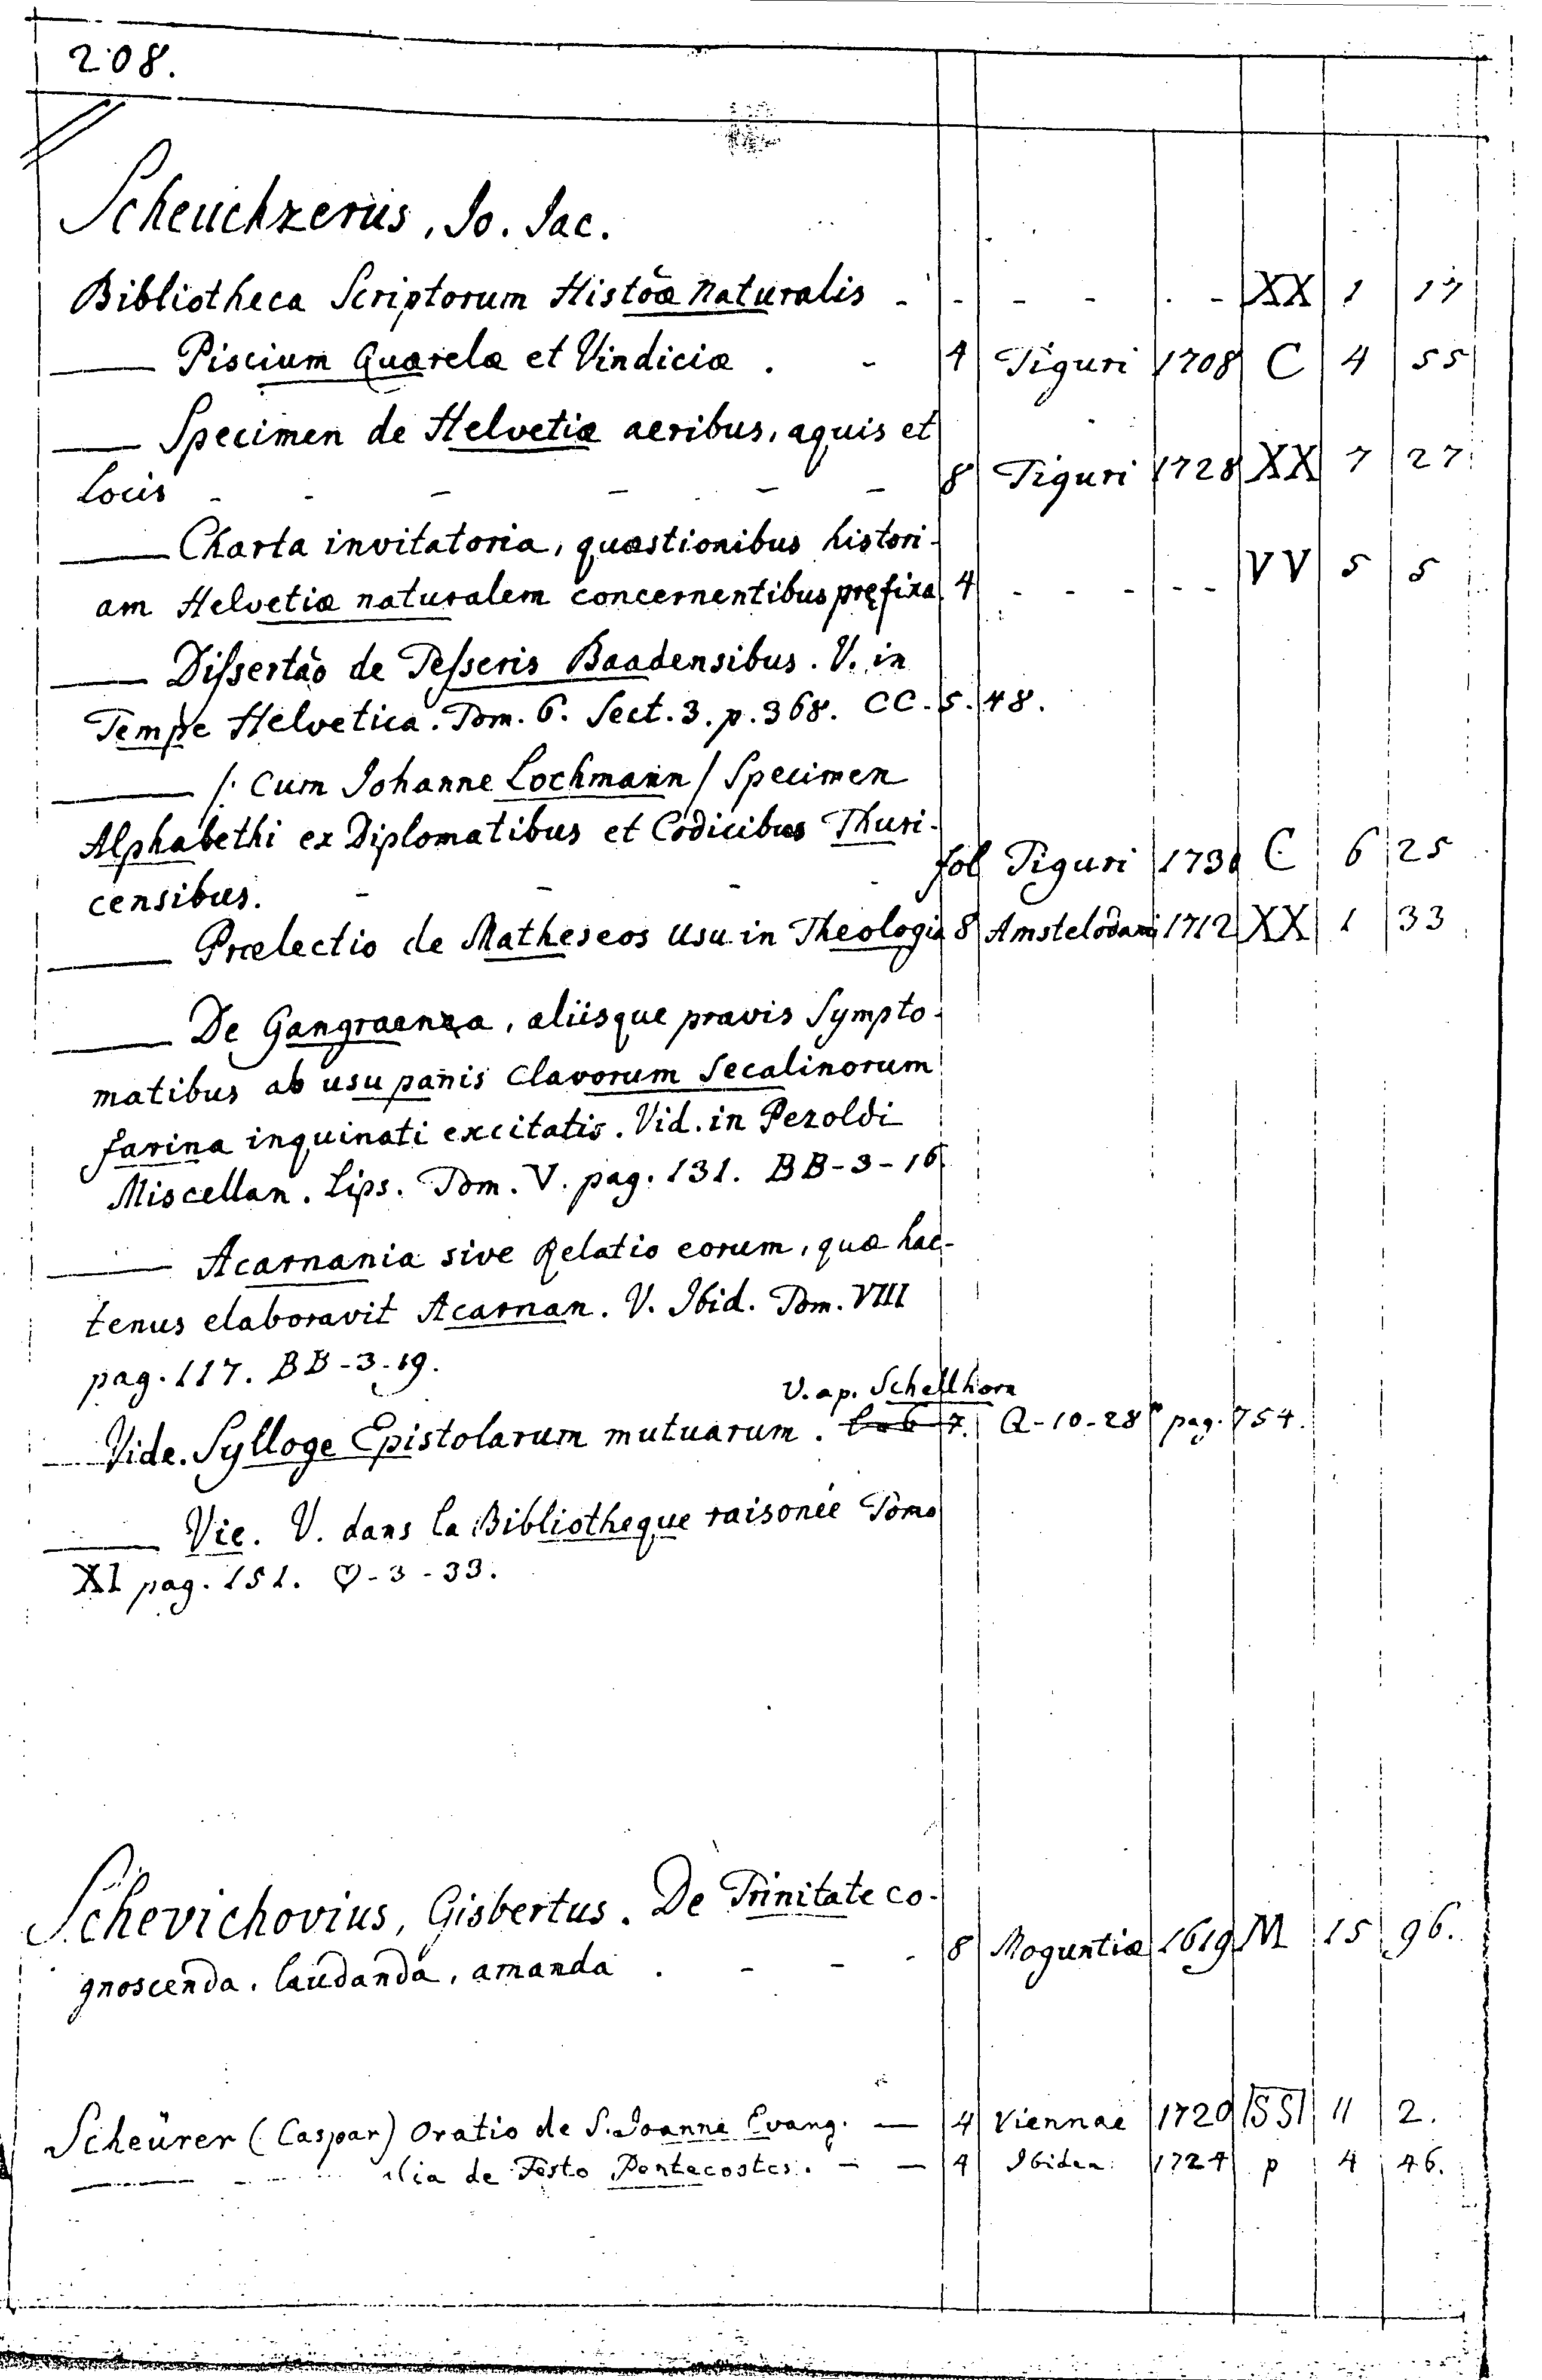 208.
Scheuchzerus, Jo. Jac.
Bibliotheca Scriptorum Histoæ Naturalis - - - - . - XX 1 17
—— Piscium Quærelæ et Vindiciæ . - 4 Tiguri 1708 C 4 55
—— Specimen de Helvetiæ aeribus, aquis et
Locis - - - - - - 8 Tiguri 1728 XX 7 27
—— Charta invitatoria, quæstionibus histori-
am Helvetiæ naturalem concernentibus præfixa 4 - - - - - VV 5 5
—— Dissertão de Tesseris Baadensibus. V. in
Tempe Helvetica. Tom. 6. Sect. 3. p. 368. CC. 5. 48.
—— /: Cum Johanne Lochmann / Specimen
Alphabethi ex Diplomatibus et Codicibus Thuri-
censibus. - - - fol Tiguri 1730 C 6 25
—— Prælectio de Matheseos usu in Theologia 8 Amstelodami 1712 XX 1 33
—— De Gangraena, aliisque pravis Sympto-
matibus ab usu panis Clavorum Secalinorum
farina inquinati excitatis. Vid. in Pezoldi
Miscellan. Lips. Tom. V. pag. 131. BB-3-16
—— Acarnania sive Relatio eorum, quæ hac-
tenus elaboravit Acarnan. V. Ibid. Tom. VIII
pag. 117. BB-3-19.
V. ap. Schellhorn
—— Vide. Sylloge Epistolarum mutuarum. Q-10-28 pag. 754.
—— Vie. V. dans la Bibliotheque raisonée Tomo
XI pag. 151. ♡-3-33.
Schevichovius, Gisbertus. De Trinitate co-
gnoscenda, laudanda, amanda . - - - 8 Moguntiæ 1619 M 15 96.
Scheürer (Caspar) Oratio de S. Joanne Evang. — 4 Viennae 1720 SS 11 2.
—— alia de Festo Pentecostes. - — 4 Ibidem 1724 p 4 46.